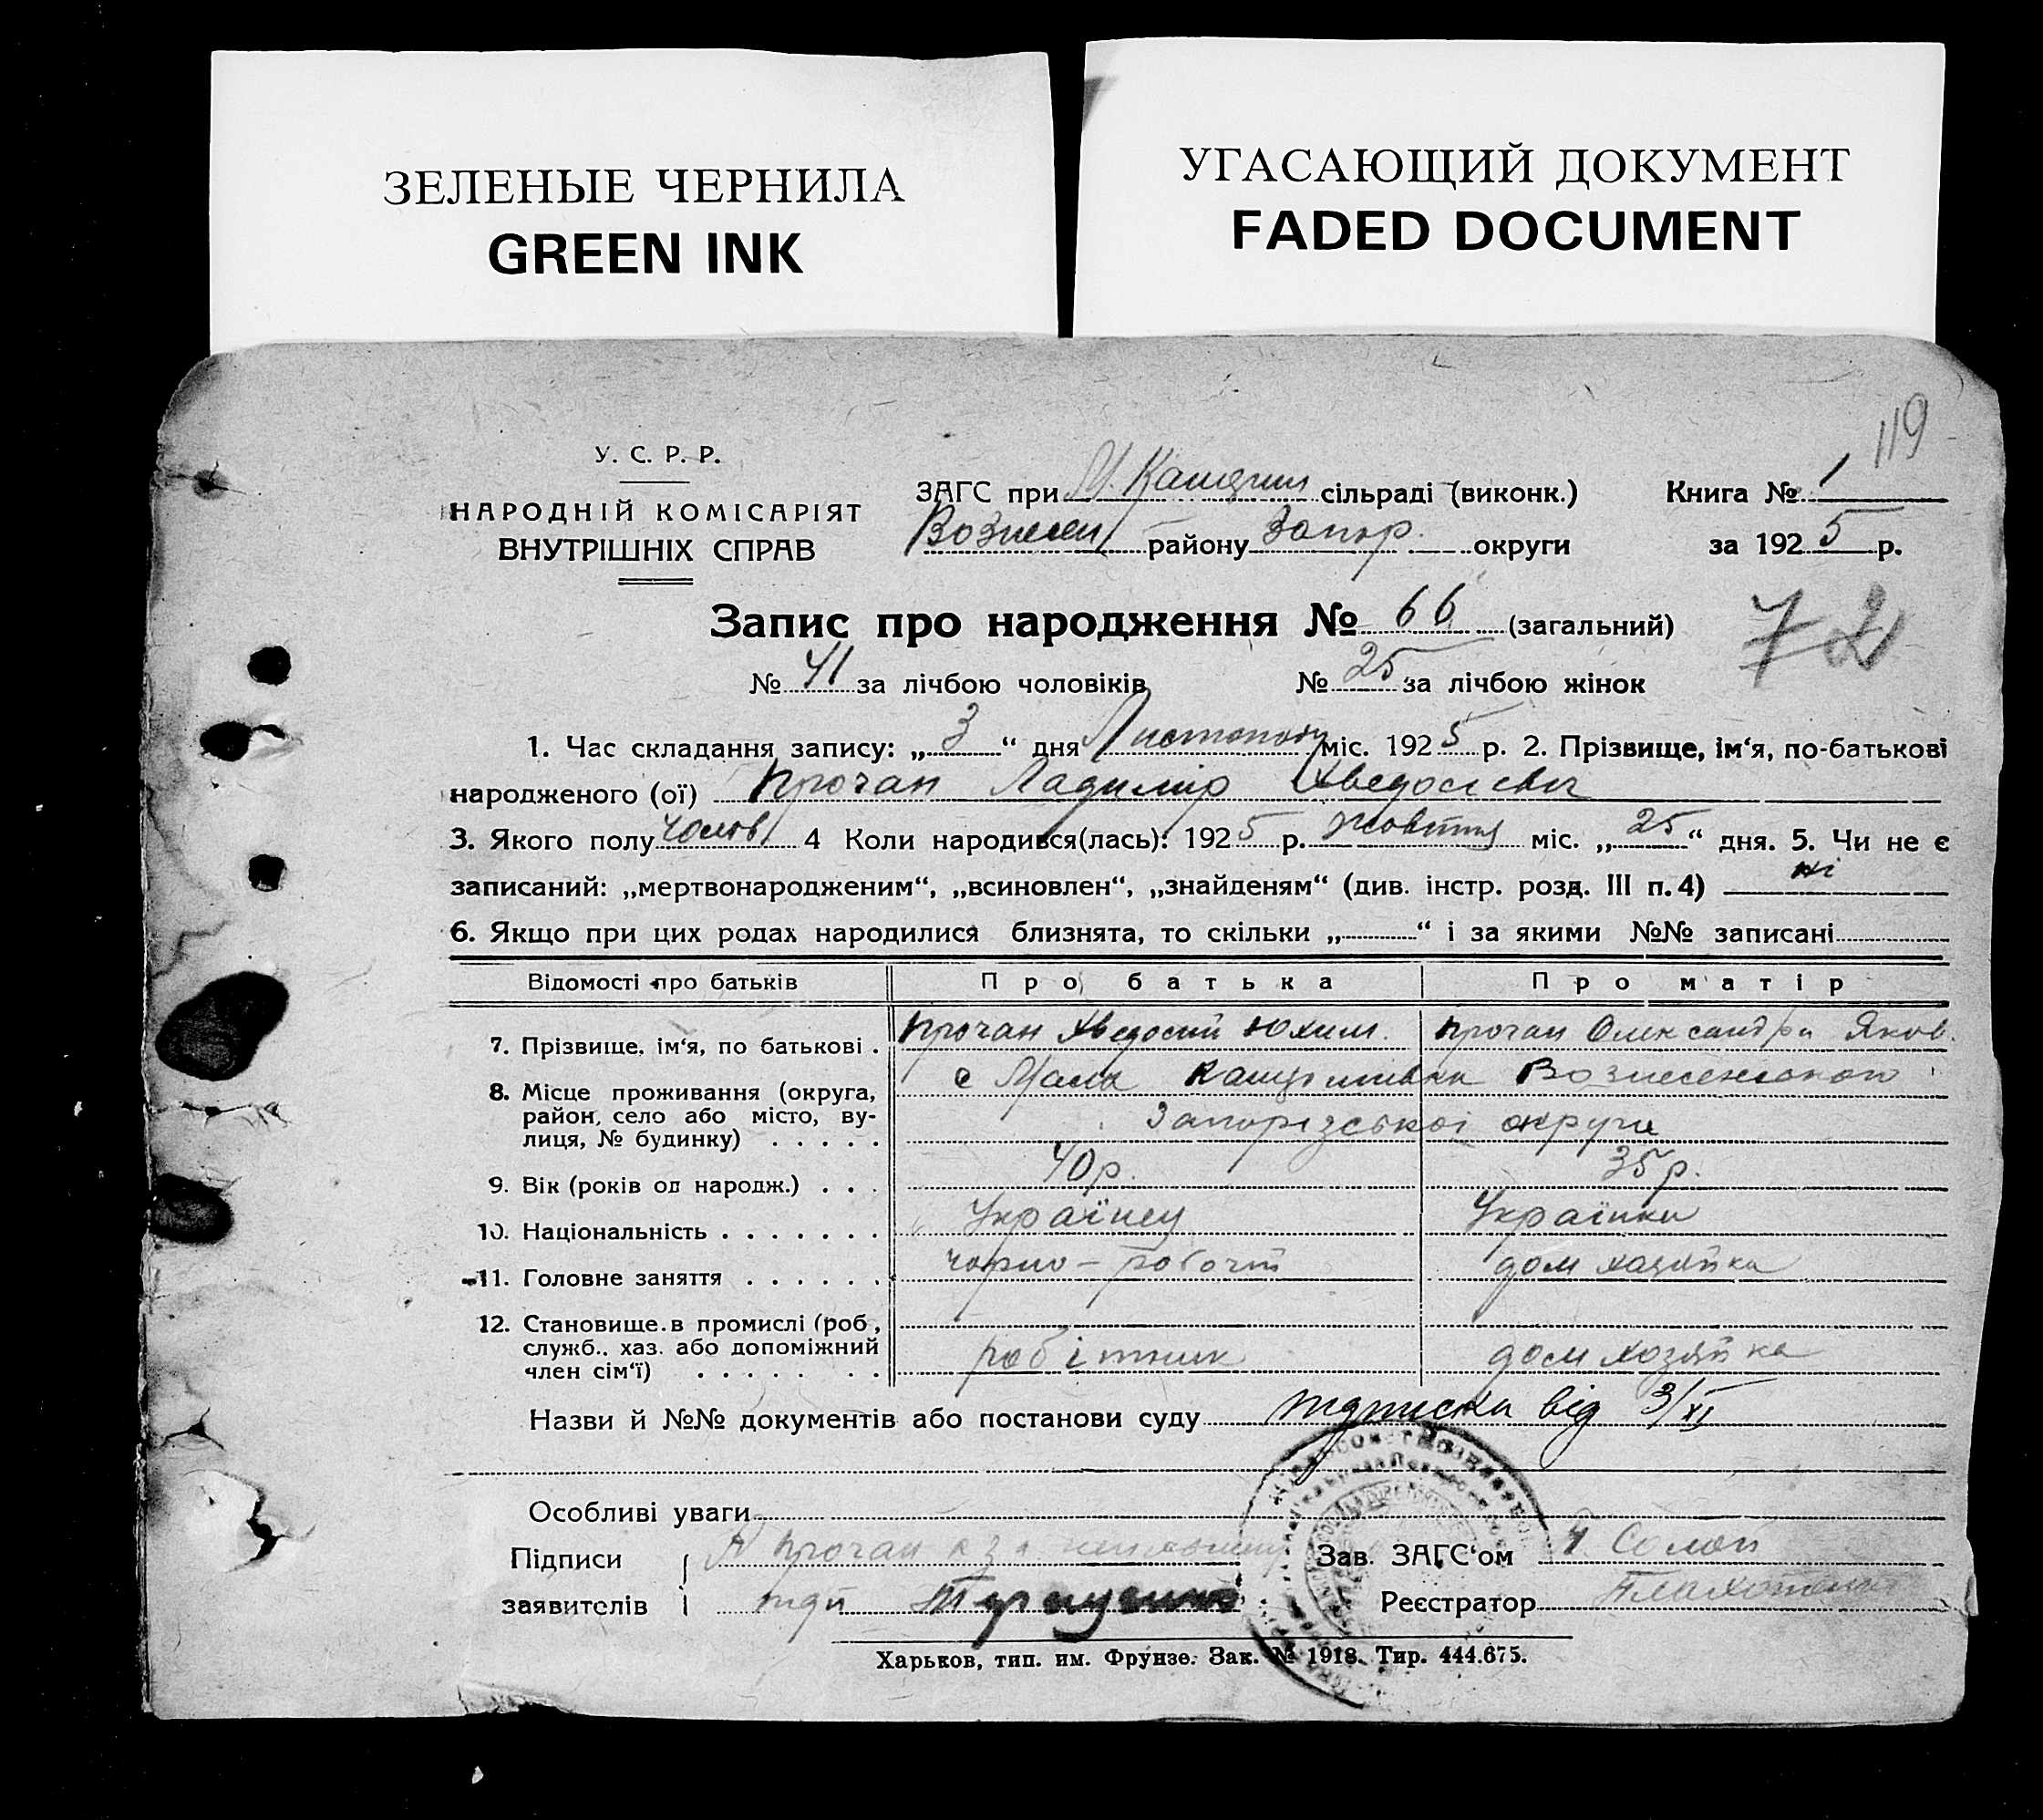 ЗЕЛЕНЫЕ ЧЕРНИЛА
GREEN INK
УГАСАЮЩИЙ ДОКУМЕНТ
FADED DOCUMENT
119
У. С. Р. Р.
НАРОДНІЙ КОМІСАРІЯТ
ВНУТРІШНІХ СПРАВ
ЗАГС при М. сільраді (виконк.) Книга № 1
району Запор. округи за 1925 р.
Запис про народження № 66 (загальний)
72
№ 41 за лічбою чоловіків № 25 за лічбою жінок
1. Час складання запису: „3“ дня Листопаду міс. 1925 р. 2. Прізвище, ім‘я, по-батькові
народженого (ої) Прочан Ладимір Хведосієвич
3. Якого полу чолов 4 Коли народився(лась): 1925 р. жовтня міс. „25“ дня. 5. Чи не є
записаний: „мертвонародженим“, „всиновлен“, „знайденям“ (див. інстр. розд. III п. 4) ні
6. Якщо при цих родах народилися близнята, то скільки „ “ і за якими №№ записані
Відомості про батьків Про батька Про матір
7. Прізвище, ім‘я, по батькові . Прочан Хведосий Юхим. Прочан Олександра Яков.
8. Місце проживання (округа, район, село або місто, вулиця, № будинку) . . . . . с Мала Вознесенского
Запорізської округи
9. Вік (років од народж.) . . . 40 р. 35 р.
10. Національність . . . . . . . Українец Українка
11. Головне заняття . . . . . . чорно-рабочий дом хазяйка
12. Становище в промислі (роб., служб., хаз. або допоміжний член сім‘ї) . . . . . . . робітник дом хозяйка
Назви й №№ документів або постанови суду підписка від 3/XI
Особливі уваги
Підписи Прочан Зав. ЗАГС‘ом Солой
заявителів Реєстратор
Харьков, тип. им. Фрунзе. Зак. № 1918. Тир. 444.675.